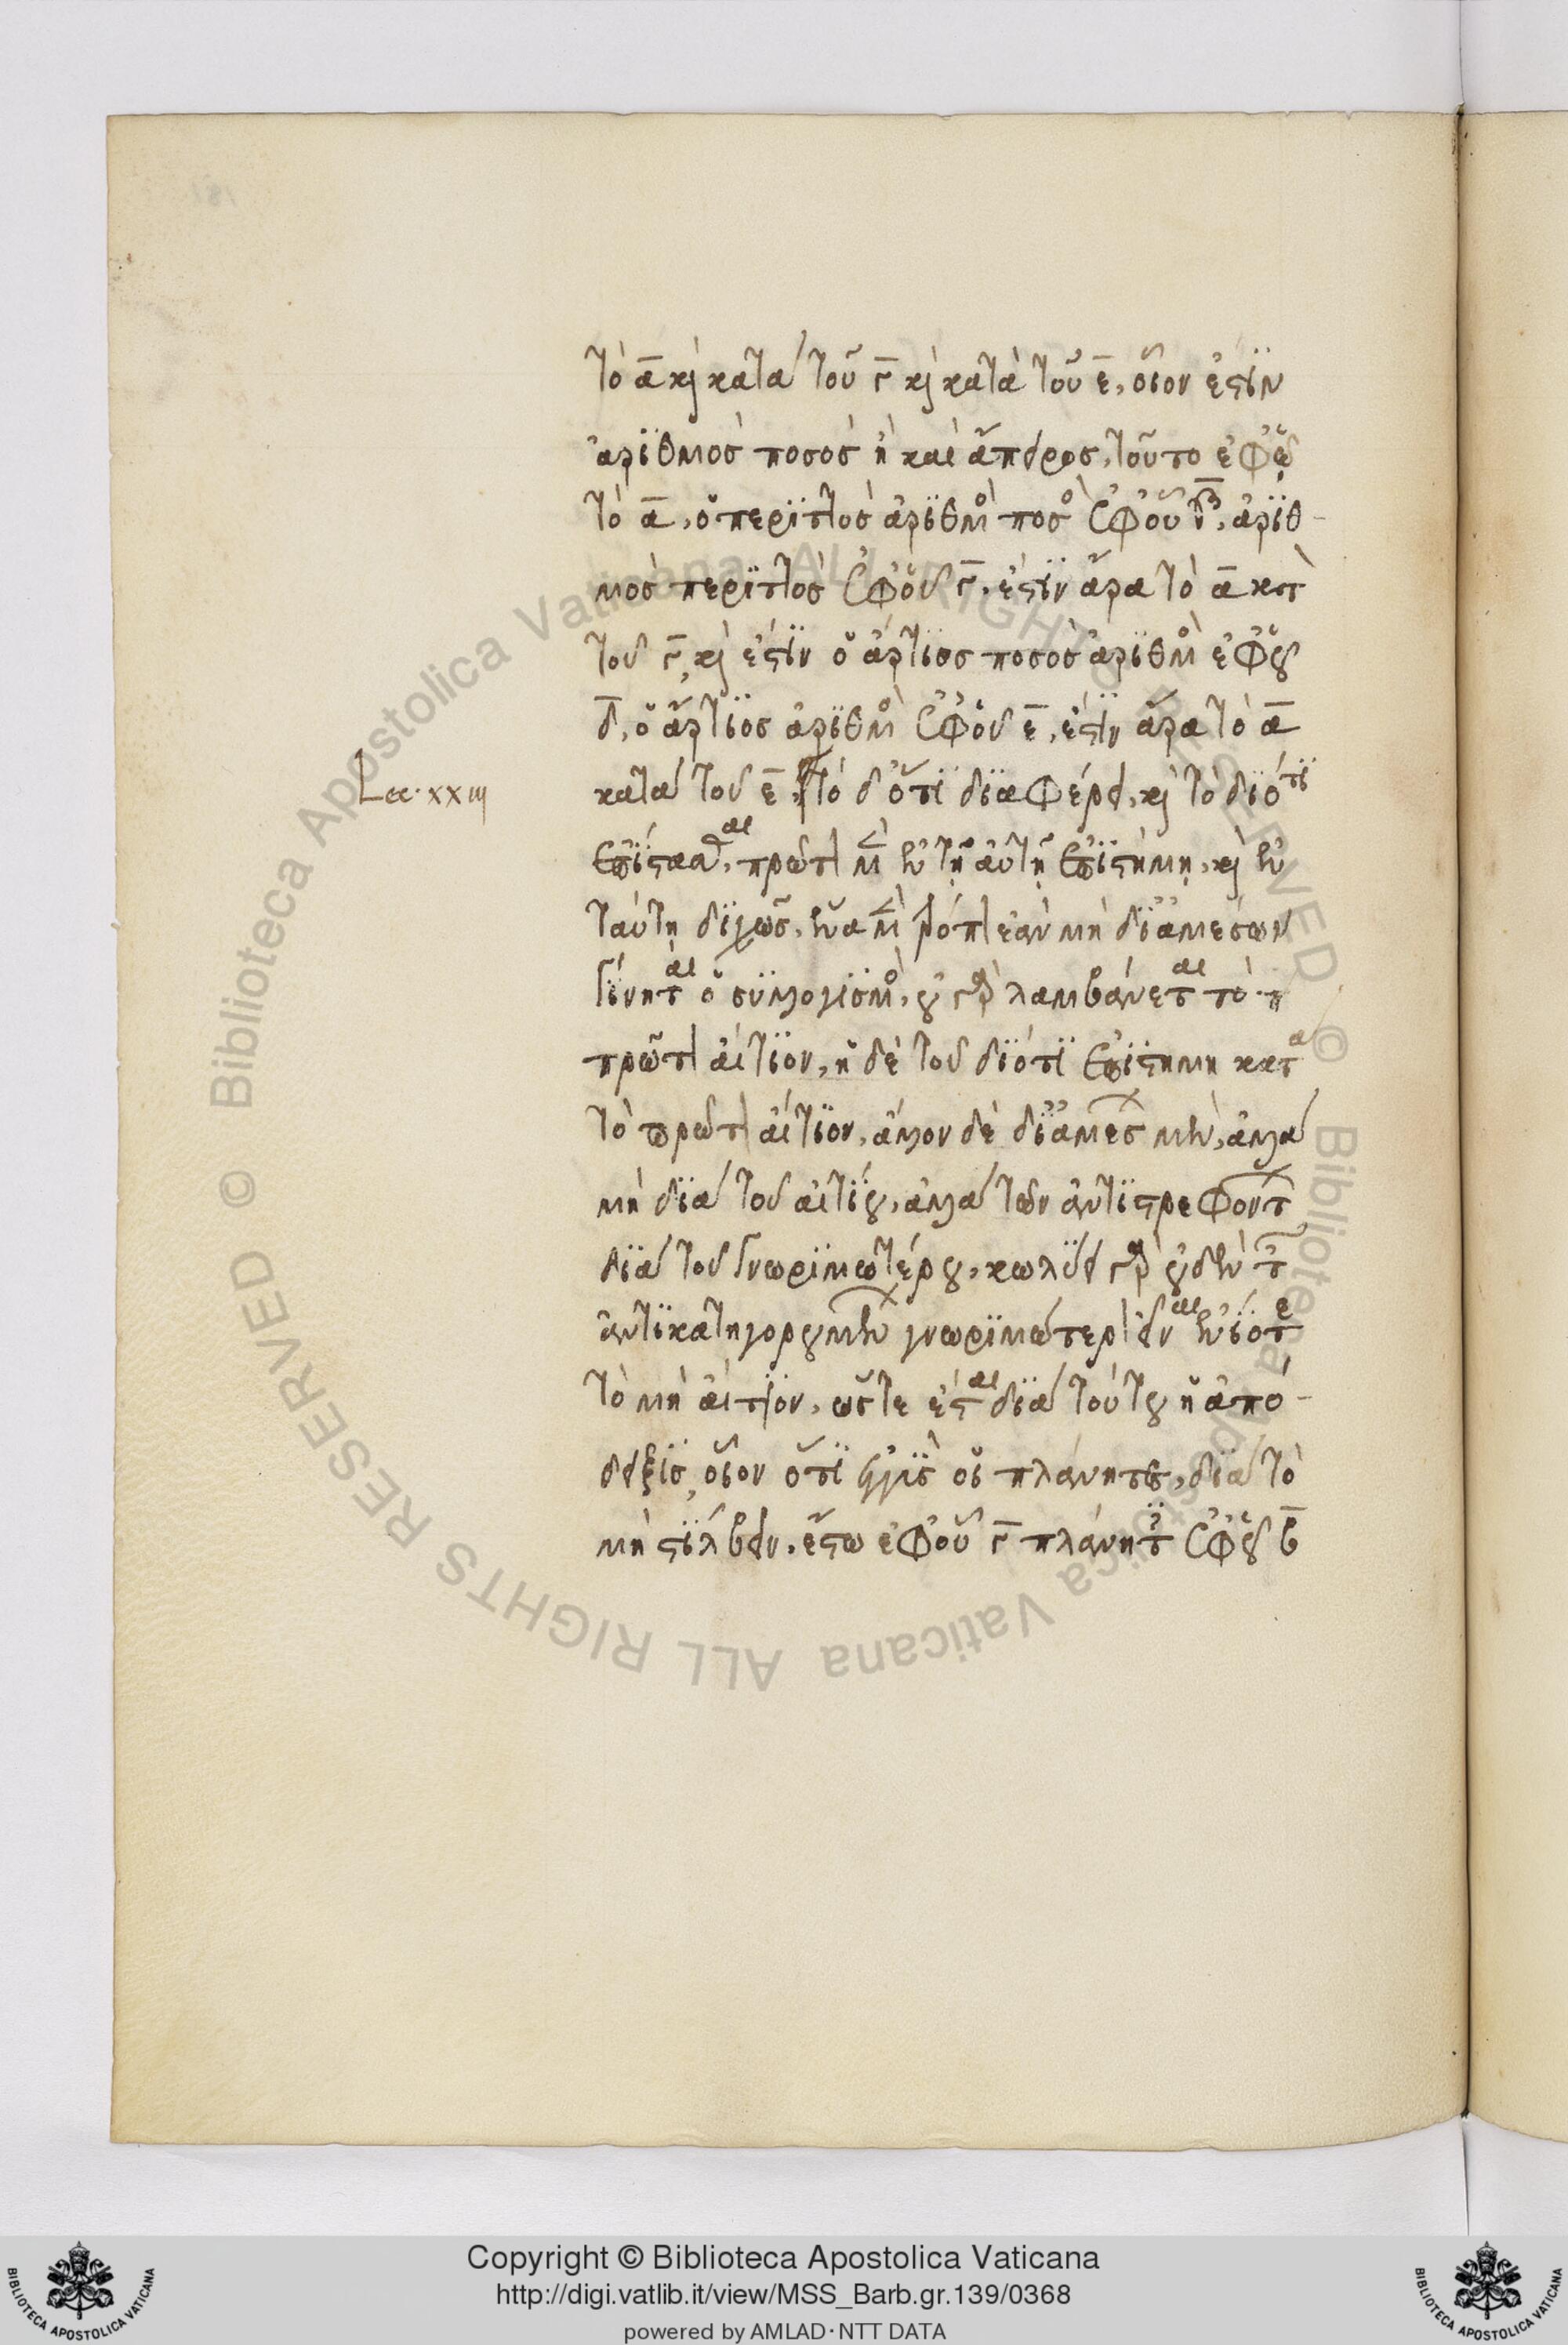 τὸ α καὶ κατὰ τοῦ γ καὶ κατὰ τοῦ ε, οἷον ἐστὶν
ἀριθμὸς ποσὸς ἢ καὶ ἄπειρος, τοῦτο ἐφ' ᾧ
τὸ α, ὁ περιττὸς ἀριθμὸς ποσὸς ἐφ' οὗ β, ἀριθ-
μὸς περιττὸς ἐφ' οὗ γ. ἐστὶν ἄρα τὸ α κατὰ
τοῦ γ, καὶ ἐστὶν ὁ ἄρτιος ποσὸς ἀριθμὸς ἐφ' οὗ
δ, ὁ ἄρτιος ἀριθμὸς ἐφ' οὗ ε, ἐστὶν ἄρα τὸ α
Lec. xxiij
κατὰ τοῦ ε. τὸ δ' ὅτι διαφέρει, καὶ τὸ διότι
ἐπίστασθαι, πρῶτον μὲν ἐν τῇ αὐτῇ ἐπιστήμῃ, καὶ ἐν
ταύτῃ διχῶς, ἕνα μὲν τρόπον ἐὰν μὴ δι' ἀμέσων
γίνηται ὁ συλλογισμὸς, οὐ γὰρ λαμβάνεται τὸ
πρῶτον αἴτιον, ἡ δὲ τοῦ διότι ἐπιστήμη κατὰ
τὸ πρῶτον αἴτιον, ἄλλον δὲ δι' ἀμέσων μὲν, ἀλλὰ
μὴ διὰ τοῦ αἰτίου, ἀλλὰ τῶν ἀντιστρεφόντων
διὰ τοῦ γνωριμωτέρου, κωλύει γὰρ οὐδὲν τῶν
ἀντικατηγορουμένων γνωριμώτερον εἶναι ἐνίοτε
τὸ μὴ αἴτιον, ὥστε ἔσται διὰ τούτου ἡ ἀπό-
δειξις, οἷον ὅτι ἐγγὺς οἱ πλάνητες, διὰ τὸ
μὴ στίλβειν. ἔστω ἐφ' οὗ γ πλάνητες ἐφ' οὗ β
Copyright © Biblioteca Apostolica Vaticana
http://digi.vatlib.it/view/MSS_Barb.gr.139/0368
powered by AMLAD·NTT DATA